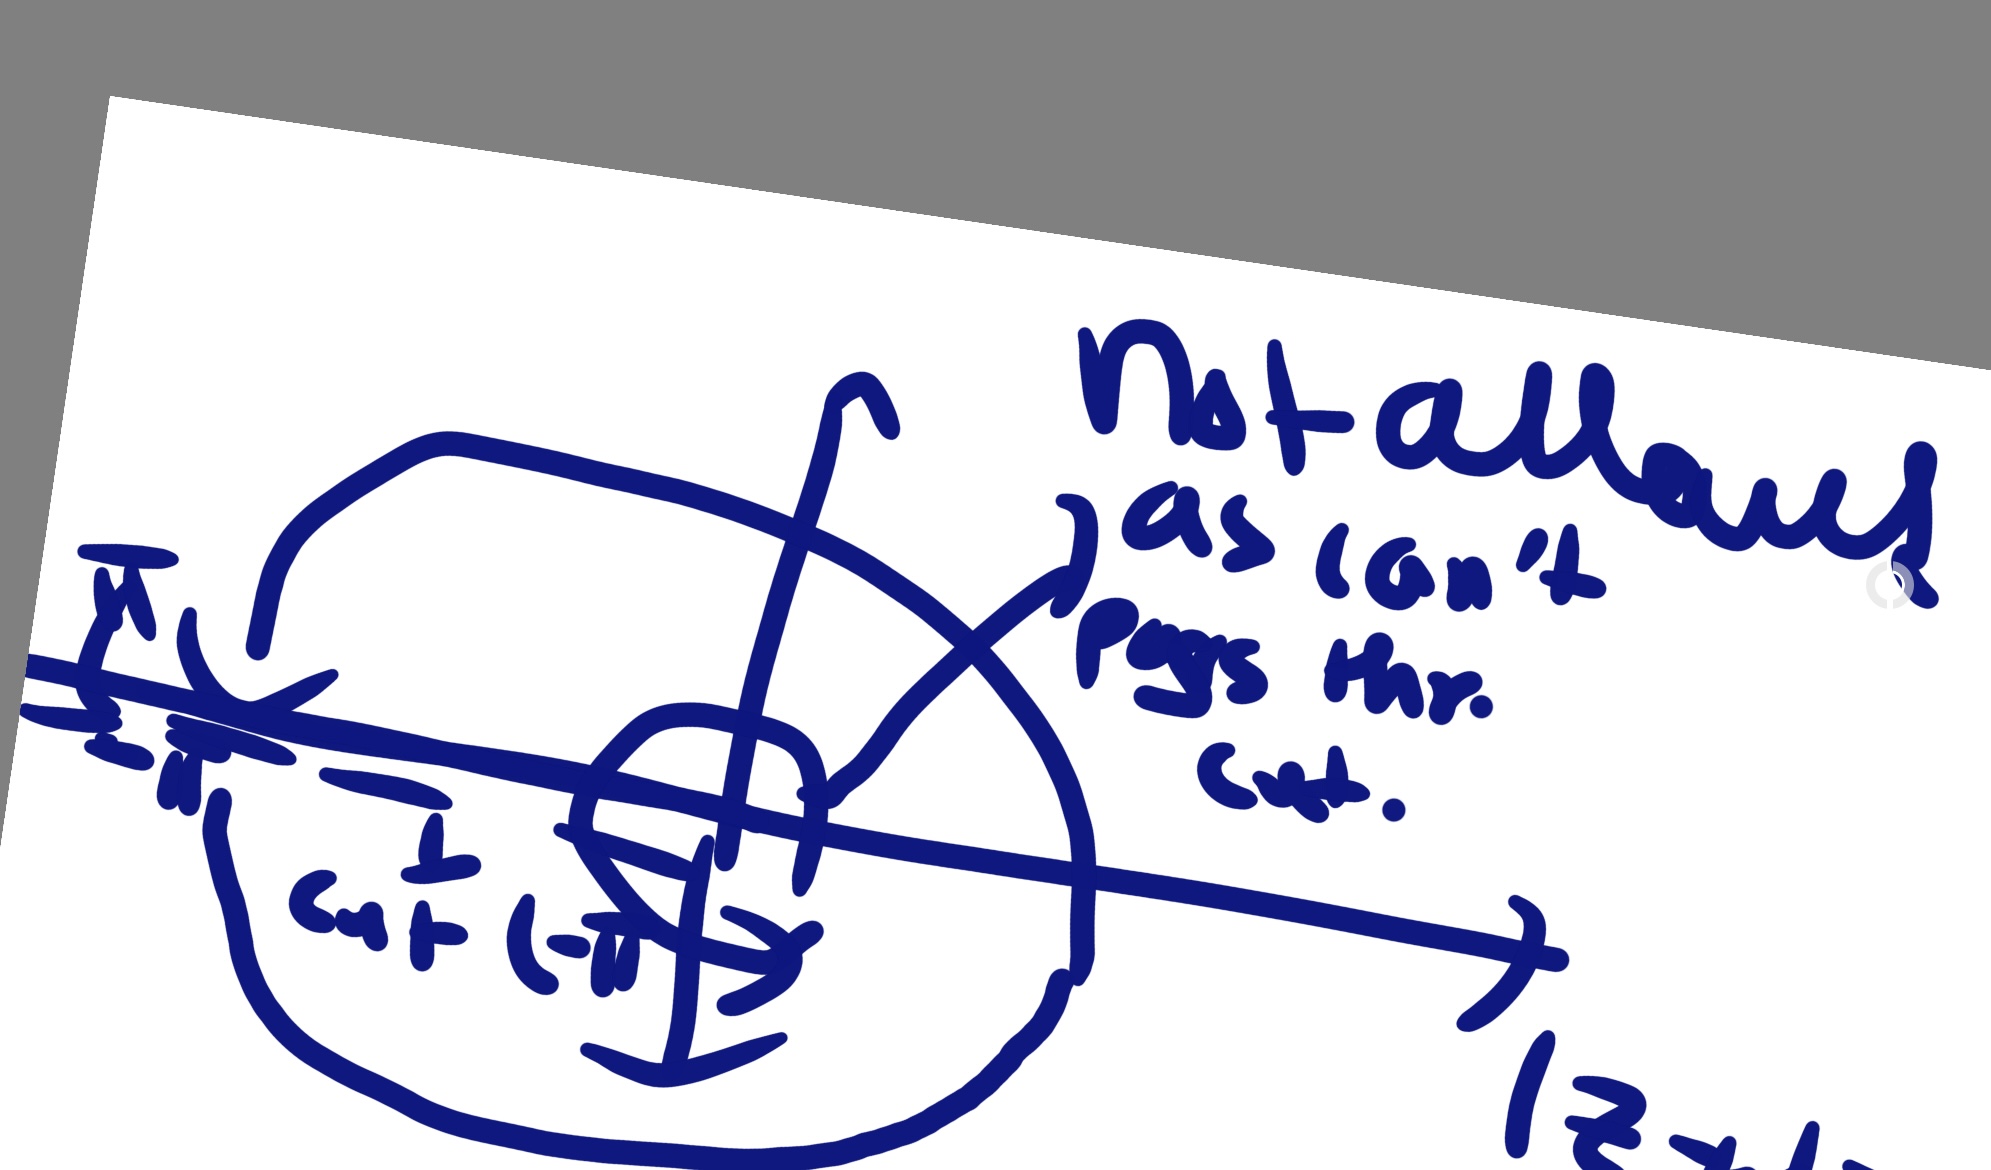 Not allowed
as can't
pass thr.
cut.
π
-π
cut (-π
|z